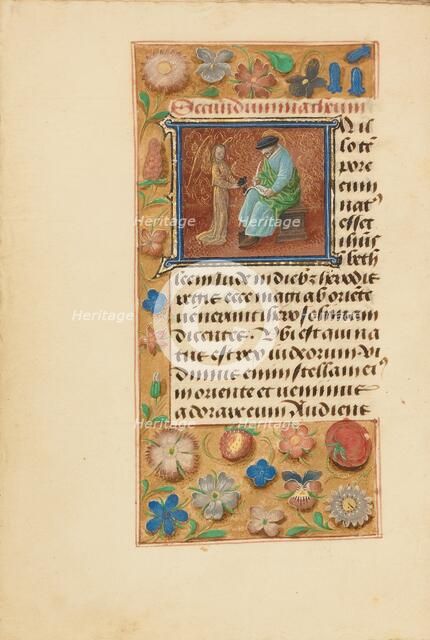 Secundum matheum
N il
lo tē
pore
cum
natꝰ
esset
ihūs
beth
leem iude in diebꝫ herodis
regis ecce magi ab oriēte
venerunt iherosolimam
dicentes. Vbi est qui na
tus est rex iudeorum Vi
dimus enim stellam eiꝰ
in oriente et venimus
adorare eum Audiens
Heritage Heritage
Heritage Heritage Heritage
Heritage Heritage